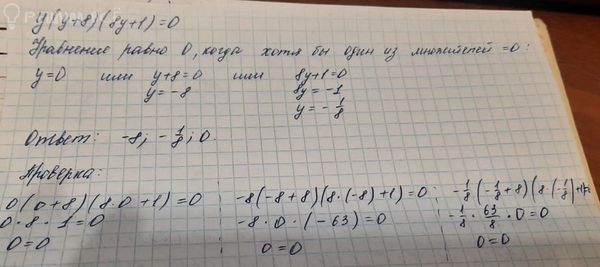 y(y+8)(8y+1)=0
Уравнение равно 0, когда хотя бы один из множителей =0:
y=0 или y+8=0 или 8y+1=0
y=-8 8y=-1
y=-1/8
Ответ: -8; -1/8; 0.
Проверка:
0(0+8)(8·0+1)=0 -8(-8+8)(8·(-8)+1)=0 -1/8(-1/8+8)(8·(-1/8)+1)=
0·8·1=0 -8·0·(-63)=0 -1/8·63/8·0=0
0=0 0=0 0=0